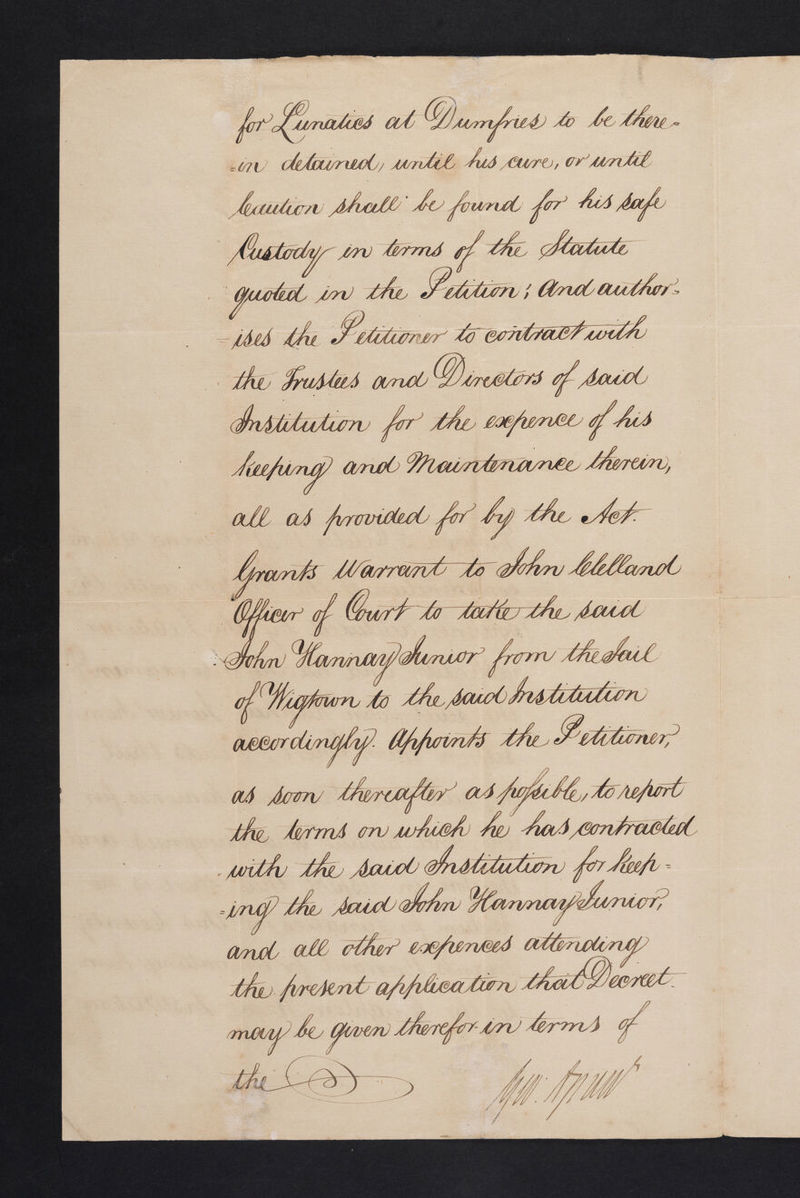 for Lunatics at Dumfries to be there=
=in detained, until his cure, or until
Caution shall be found for his safe
Custody in terms of the Statute
quoted in the Petition; And author=
=ises the Petitioner to contract with
the Trustees and Directors of said
Institution for the expence of his
keeping and Maintenance therein,
all as provided for by the Act.
Grants Warrant to John Clelland
Officer of Court to take the said
John Hannay Junior from the Jail
of Wigtown to the said Institution
accordingly. Appoints the Petitioner,
as soon thereafter as possible, to report
the terms on which he has contracted
with the said Institution for keep=
=ing the said John Hannay Junior,
and all other expences attending
the present application that Decreet
may be given therefor in terms of
the